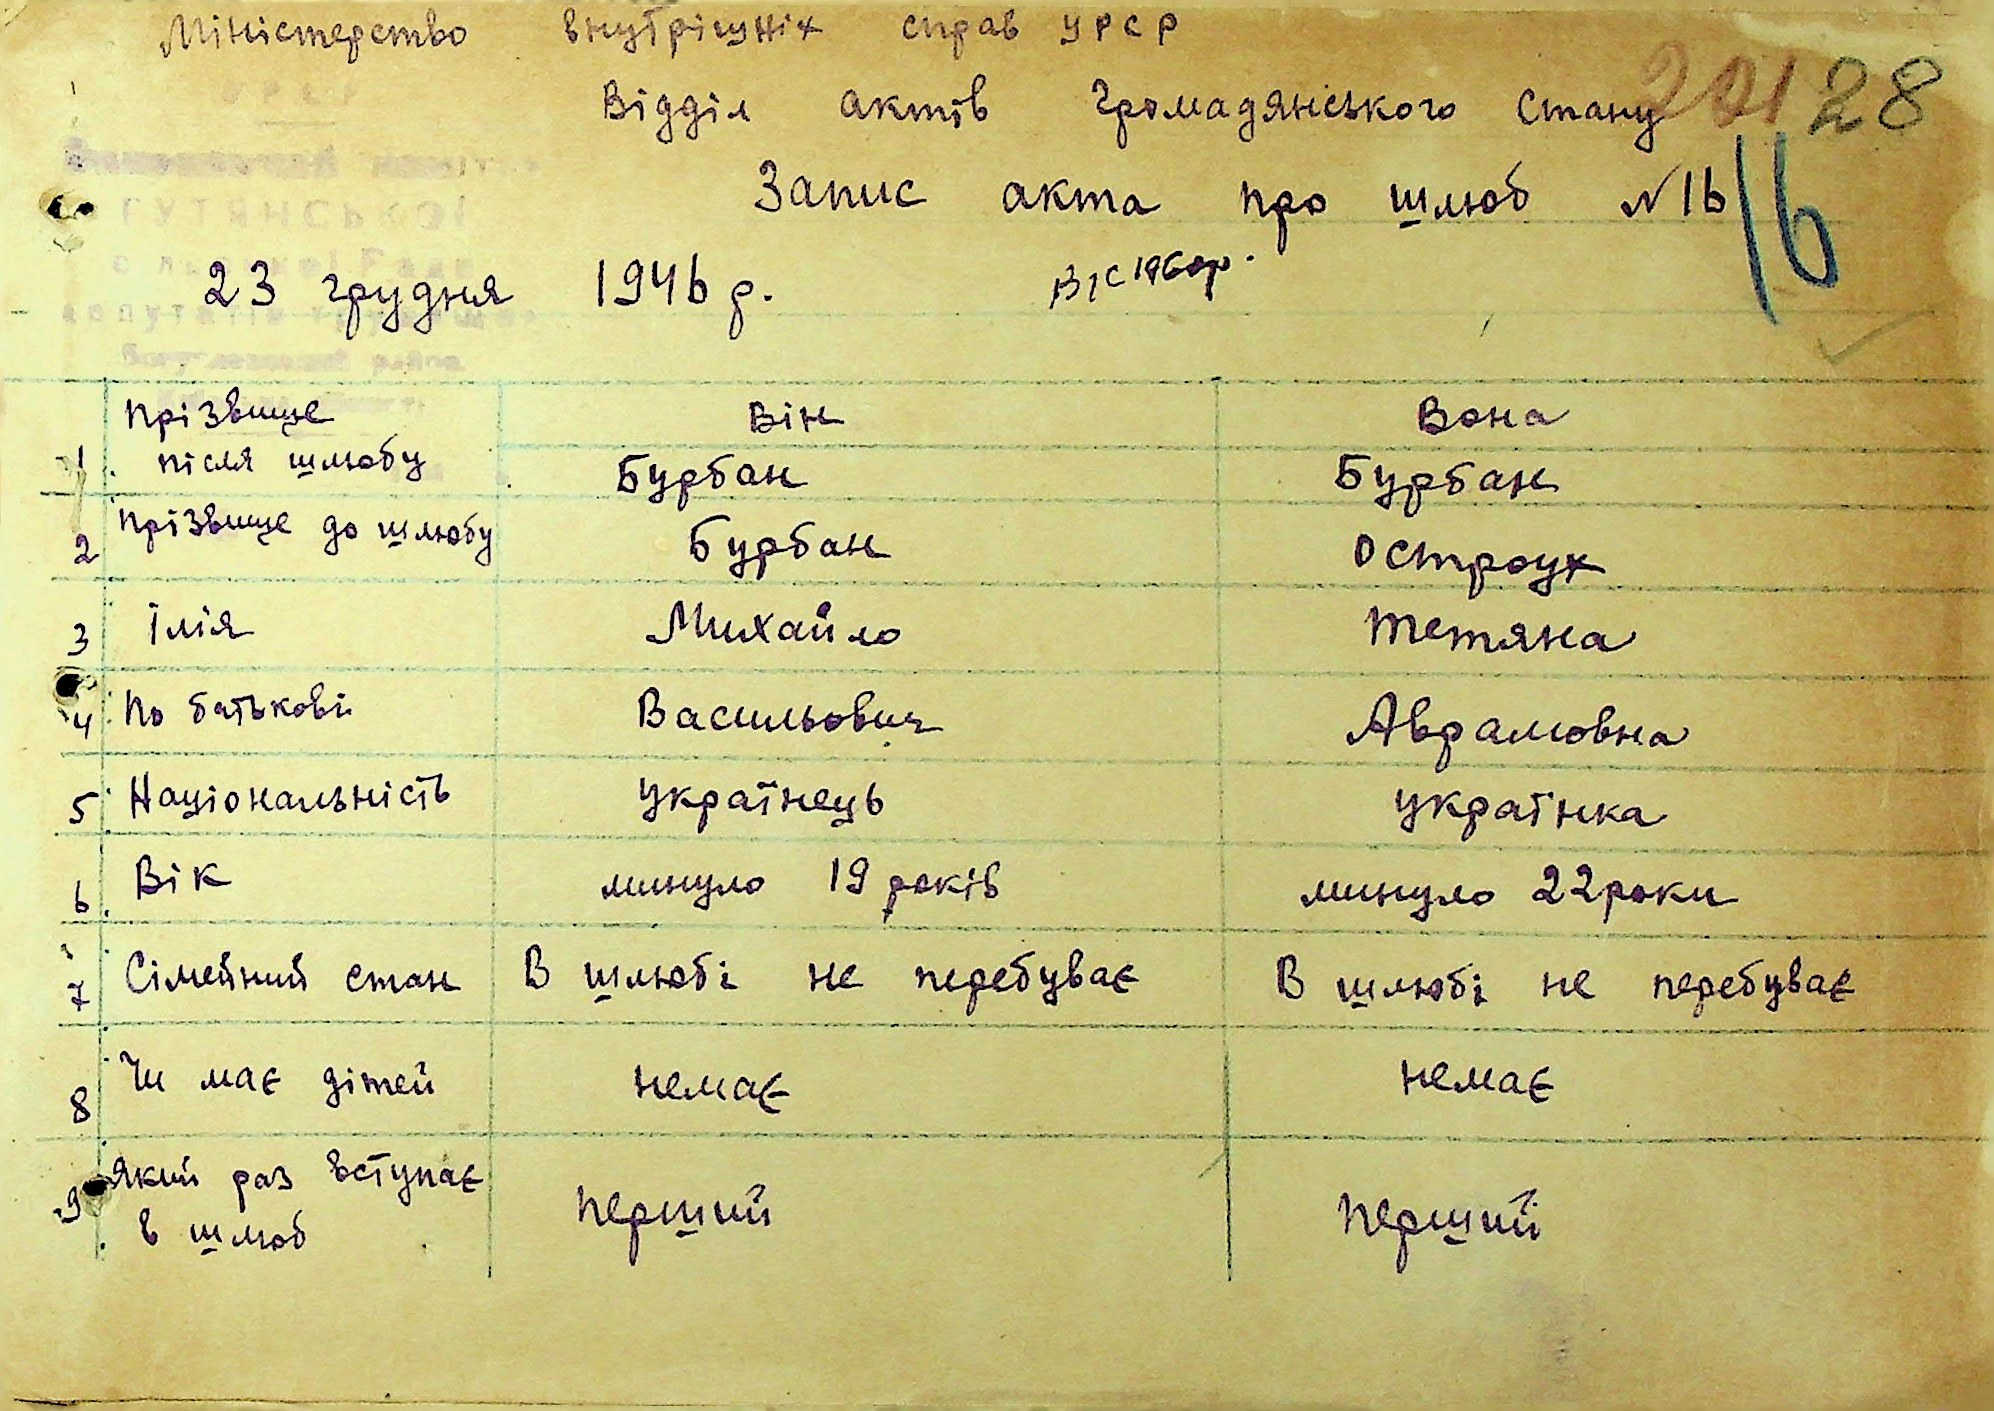 Міністерство внутрішніх справ УРСР
201 28
Відділ актів громадянського стану
Запис акта про шлюб N 16
16
23 грудня 1946 р.
УРСР
ГУТЯНСЬКОЇ
Прізвище Він Вона
1. після шлюбу Бурбан Бурбан
2 Прізвище до шлюбу Бурбан Остроух
3 Імія Михайло Тетяна
4 По батькові Васильович Аврамовна
5 Національність Українець Українка
6. Вік минуло 19 років минуло 22 роки
7 Сімейний стан В шлюбі не перебуває В шлюбі не перебуває
8 Чи має дітей немає немає
9 Який раз вступає
в шлюб перший перший